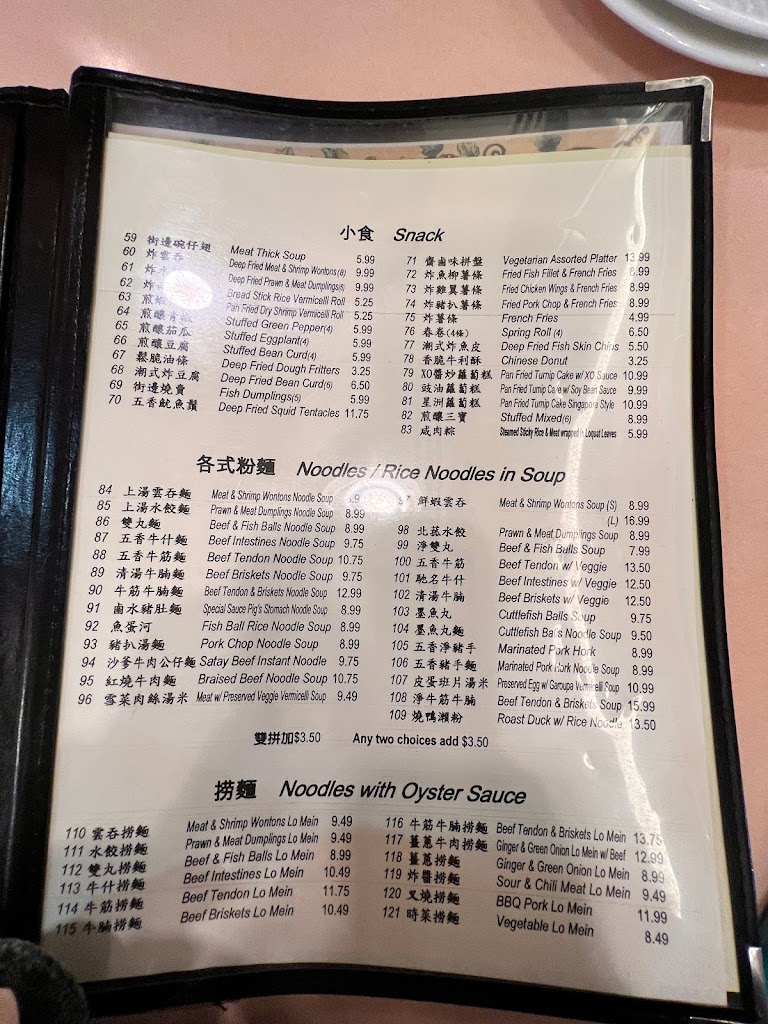 小食 Snack
59 街邊碗仔翅 Meat Thick Soup 5.99
60 炸雲吞 Deep Fried Meat & Shrimp Wontons (8) 9.99
61 炸水 Deep Fried Prawn & Meat Dumplings 9.99
62 炸 Bread Stick Rice Vermicelli Roll 5.25
63 煎蝦 Pan Fried Dry Shrimp Vermicelli Roll 5.25
64 煎釀青椒 Stuffed Green Pepper(4) 5.99
65 煎釀茄瓜 Stuffed Eggplant(4) 5.99
66 煎釀豆腐 Stuffed Bean Curd(4) 5.99
67 鬆脆油條 Deep Fried Dough Fritters 3.25
68 潮式炸豆腐 Deep Fried Bean Curd(6) 6.50
69 街邊燒賣 Fish Dumplings(5) 5.99
70 五香魷魚鬚 Deep Fried Squid Tentacles 11.75
71 齋鹵味拼盤 Vegetarian Assorted Platter 13.99
72 炸魚柳薯條 Fried Fish Fillet & French Fries 8.99
73 炸雞翼薯條 Fried Chicken Wings & French Fries 8.99
74 炸豬扒薯條 Fried Pork Chop & French Fries 8.99
75 炸薯條 French Fries 4.99
76 春卷(4條) Spring Roll (4) 6.50
77 潮式炸魚皮 Deep Fried Fish Skin Chips 5.50
78 香脆牛利酥 Chinese Donut 3.25
79 XO醬炒蘿蔔糕 Pan Fried Turnip Cake w/ XO Sauce 10.99
80 豉油蘿蔔糕 Pan Fried Turnip Cake w/ Soy Bean Sauce 9.99
81 星洲蘿蔔糕 Pan Fried Turnip Cake Singapore Style 10.99
82 煎釀三寶 Stuffed Mixed(6) 8.99
83 咸肉粽 Steamed Sticky Rice & Meat wrapped in Loquat Leaves 5.99
各式粉麵 Noodles / Rice Noodles in Soup
84 上湯雲吞麵 Meat & Shrimp Wontons Noodle Soup
85 上湯水餃麵 Prawn & Meat Dumplings Noodle Soup 8.99
86 雙丸麵 Beef & Fish Balls Noodle Soup 8.99
87 五香牛什麵 Beef Intestines Noodle Soup 9.75
88 五香牛筋麵 Beef Tendon Noodle Soup 10.75
89 清湯牛腩麵 Beef Briskets Noodle Soup 9.75
90 牛筋牛腩麵 Beef Tendon & Briskets Noodle Soup 12.99
91 鹵水豬肚麵 Special Sauce Pig's Stomach Noodle Soup 8.99
92 魚蛋河 Fish Ball Rice Noodle Soup 8.99
93 豬扒湯麵 Pork Chop Noodle Soup 8.99
94 沙爹牛肉公仔麵 Satay Beef Instant Noodle 9.75
95 紅燒牛肉麵 Braised Beef Noodle Soup 10.75
96 雪菜肉絲湯米 Meat w/ Preserved Veggie Vermicelli Soup 9.49
97 鮮蝦雲吞 Meat & Shrimp Wontons Soup (S) 8.99
(L) 16.99
98 北菇水餃 Prawn & Meat Dumplings Soup 8.99
99 淨雙丸 Beef & Fish Balls Soup 7.99
100 五香牛筋 Beef Tendon w/ Veggie 13.50
101 馳名牛什 Beef Intestines w/ Veggie 12.50
102 清湯牛腩 Beef Briskets w/ Veggie 12.50
103 墨魚丸 Cuttlefish Balls Soup 9.75
104 墨魚丸麵 Cuttlefish Balls Noodle Soup 9.50
105 五香淨豬手 Marinated Pork Hork 8.99
106 五香豬手麵 Marinated Pork Hork Noodle Soup 8.99
107 皮蛋班片湯米 Preserved Egg w/ Garoupa Vermicelli Soup 10.99
108 淨牛筋牛腩 Beef Tendon & Briskets Soup 15.99
109 燒鴨瀨粉 Roast Duck w/ Rice Noodle 13.50
雙拼加$3.50 Any two choices add $3.50
撈麵 Noodles with Oyster Sauce
110 雲吞撈麵 Meat & Shrimp Wontons Lo Mein 9.49
111 水餃撈麵 Prawn & Meat Dumplings Lo Mein 9.49
112 雙丸撈麵 Beef & Fish Balls Lo Mein 8.99
113 牛什撈麵 Beef Intestines Lo Mein 10.49
114 牛筋撈麵 Beef Tendon Lo Mein 11.75
115 牛腩撈麵 Beef Briskets Lo Mein 10.49
116 牛筋牛腩撈麵 Beef Tendon & Briskets Lo Mein 13.75
117 薑蔥牛肉撈麵 Ginger & Green Onion Lo Mein w/ Beef 12.99
118 薑蔥撈麵 Ginger & Green Onion Lo Mein 8.99
119 炸醬撈麵 Sour & Chili Meat Lo Mein 9.49
120 叉燒撈麵 BBQ Pork Lo Mein 11.99
121 時菜撈麵 Vegetable Lo Mein 8.49